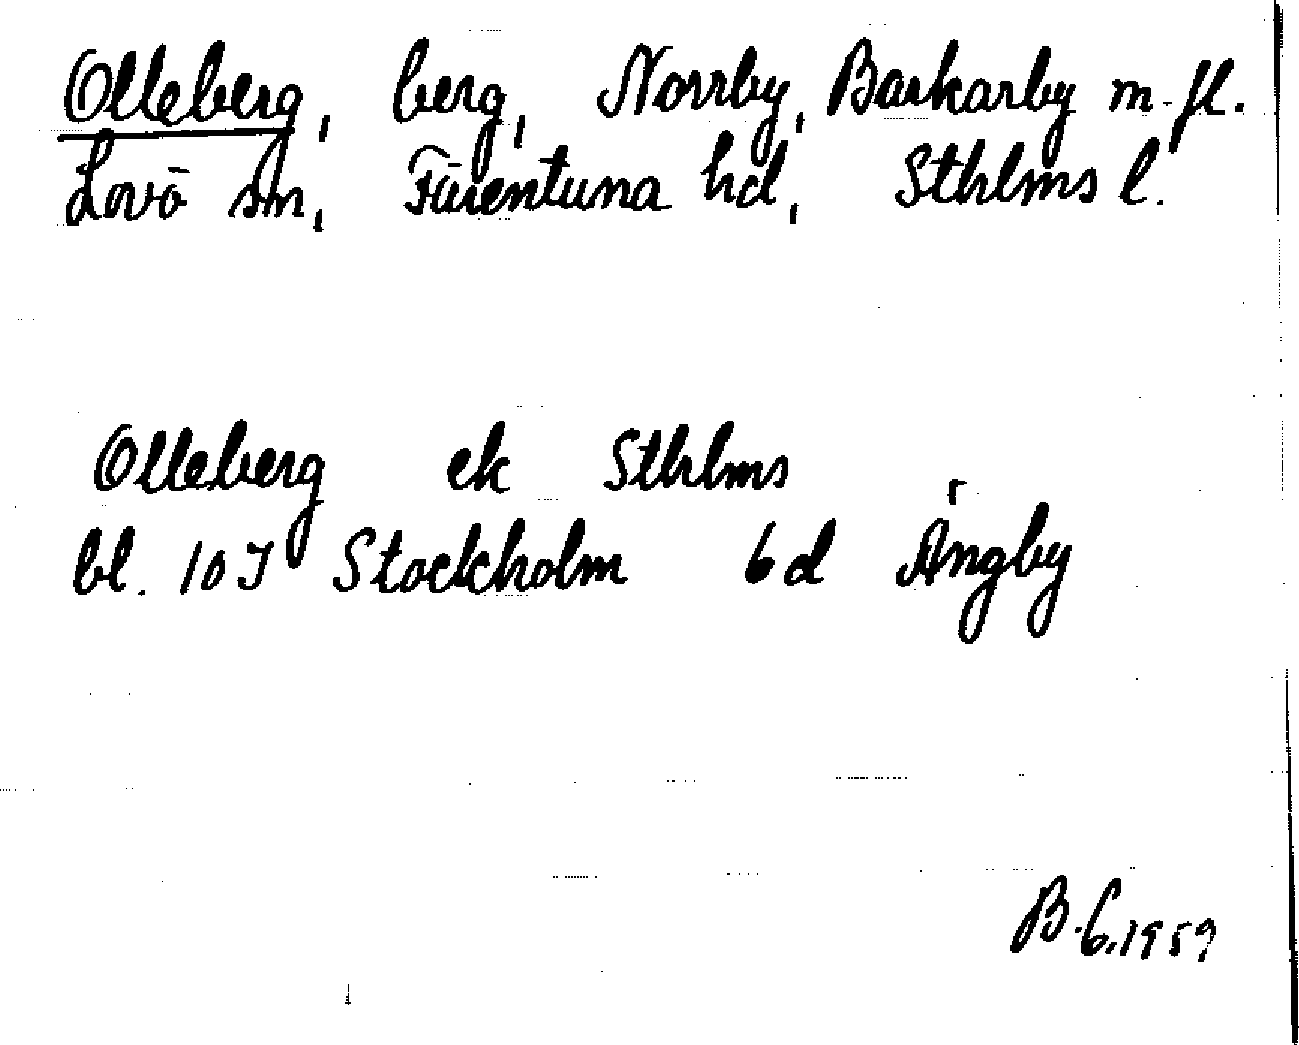 Olleberg, berg, Norrby, Barkarby m. fl.
Lovö sn, Färentuna hd, Sthlms l.
Olleberg ek Sthlms
bl. 10 I Stockholm 6 d Ängby
B. G. 1959